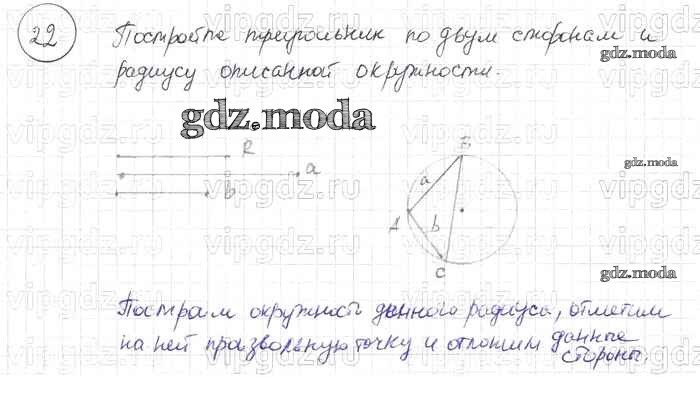 22
Постройте треугольник по двум сторонам и
радиусу описанной окружности.
gdz.moda
gdz.moda
R
a
b
B
a
A
b
C
gdz.moda
gdz.moda
Построим окружность данного радиуса, отметим
на ней произвольную точку и отложим данные
стороны.
vipgdz.ru